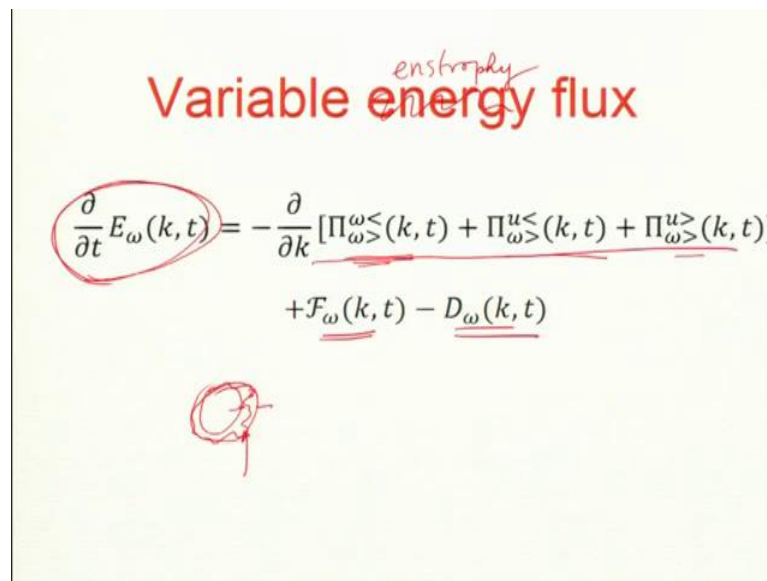 enstrophy
Variable energy flux
∂/∂t E_ω(k, t) = − ∂/∂k [Π^{ω<}_{ω>}(k, t) + Π^{u<}_{ω>}(k, t) + Π^{u>}_{ω>}(k, t)]
+ℱ_ω(k, t) − D_ω(k, t)